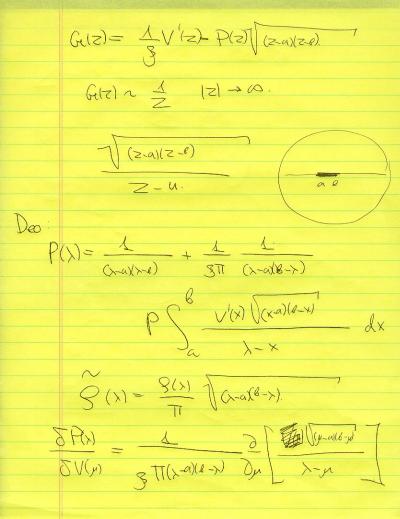 G(z) = 1/ξ V'(z) - P(z) √(z-a)(z-b)
G(z) ~ 1/z |z| → ∞.
√(z-a)(z-b) / z-u.
a b
Deo:
P(λ) = 1/(λ-a)(λ-b) + 1/ξπ 1/(λ-a)(b-λ)
P ∫_a^b V'(x) √(x-a)(b-x) / λ-x dx
ρ̃(λ) = ρ(λ)/π √(λ-a)(b-λ).
δP(λ)/δV(μ) = 1/ξπ(λ-a)(b-λ) ∂/∂μ [ √(μ-a)(b-μ) / λ-μ ]